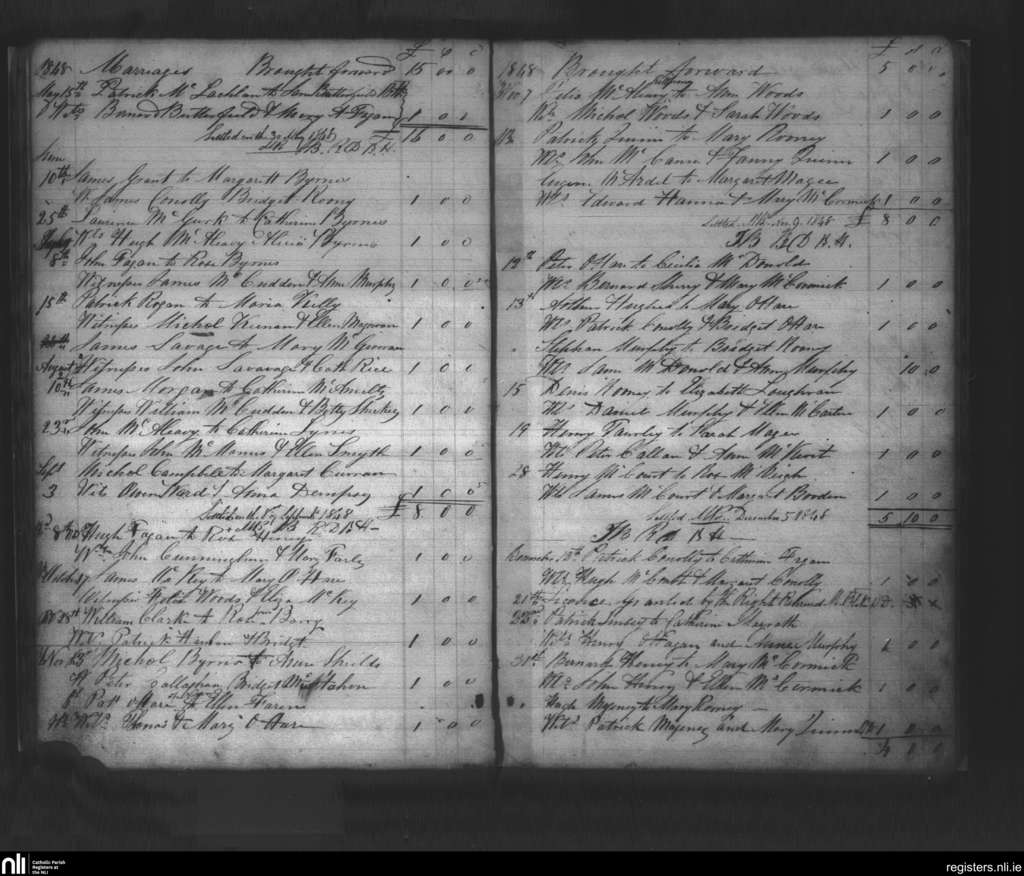 £ s d
1848 Marriages Brought forward 15 00 0
May 15th Patrick Mc Lachlan to Butterfield
Wts Barnard Butterfield & Mary A Fagan 1 0 0
Settled with 30 May 1848 £ 16 0 0
B. R.C.D. B.H.
June
10th James Grant to Margaret Byrnes
Wts James Conolly Bridget Roony 1 0 0
25th Laurence Mc Gurk to Catherine Byrnes
Wts Hugh Mc Aleavy Alicia Byrns 1 0 0
8th John Fagan to Rose Byrnes
Witnesses James Mc Cudden & Ann Murphy 1 0 0
15th Patrick Rogan to Maria Kelly
Witnesses Michol Keenan & Ellen Magowan 1 0 0
James Savage to Mary Mc Gowan
August Witnesses John Savavage & Cath Rice 1 0 0
10th James Morgan to Catherine Mc Anulty
Witnesses William Mc Cudden & Betty Sharkey 1 0 0
23rd John Mc Aleavy to Catherine Byrns
Witnesses John Mc Manus & Ellen Smyth 1 0 0
Sept Michol Campbell to Margaret Curran
3 Wits Owen Ward & Anna Dempsey 1 0 0
Settled 1848 £ 8 0 0
Hugh Fagan to Rose Henry
John Cunningham & Mary Farly 1 0 0
17 James Mc Key to Mary O Hare
Witnesses Woods & Eliza Mc Key 1 0 0
William Clarke to Barry
Wts Patrick Hanlon & Bridget 1 0 0
Nov Michol Byrnes to Ann Shields
Peter Callaghan Bridget Mc Mahon 1 0 0
Pat O Hare to Ellen Farens
Wts Thomas & Mary O Hare 1 0 0
£ s d
1848 Brought forward 5 0 0
Nov 7 Felix Mc Aleavy to Ann Woods
Wts Michol Woods & Sarah Woods 1 0 0
Patrick Quinn to Mary Rooney
Wts Ann Mc Cann & Fanny Quinn 1 0 0
Eugen Mc Ardel to Margaret Magee
Wts Edward Hanna & Mary Mc Cormick 1 0 0
Settled Nov 9 1848 £ 8 0 0
B R.C.D B.H.
12th Peter O Hare to Cecilia Mc Donold
Wts Bernard Sherry & Mary Mc Cormick 1 0 0
13th Arthur Hughes to Mary O Hare
Wts Patrick Conolly & Bridget O Hare 1 0 0
Stephen Murphy to Bridget Roony
Wts James Mc Donold & Ann Murphy 10 0
15 Denis Rooney to Elizabeth Loughran
Wts Daniel Murphy & Ellen Mc Cartan 1 0 0
19 Henry Fawley to Sarah Magee
Wts Peter Callan & Ann Mc Kevit 1 0 0
28 Henry Mc Court to Rose Mc Veigh
Wts James Mc Court & Margaret Boorden 1 0 0
Settled December 5 1848 5 10 0
B R.C.D B H
December Patrick Conolly to Catherine Fagan
Wts Hugh & Margaret Conolly 1 0 0
21st Licence Granted by the Right Reverend
Patrick to Catherine
Wts Henry Fagan and Anne Murphy 1 0 0
31st Bernard Henry to Mary Mc Cormick
Wts John Henry & Ellen Mc Cormick 1 0 0
Hugh to Mary Rooney
Wits Patrick and Mary Quinn 1 0 0
0 0
nli
Catholic Parish
Registers at
the NLI
registers.nli.ie